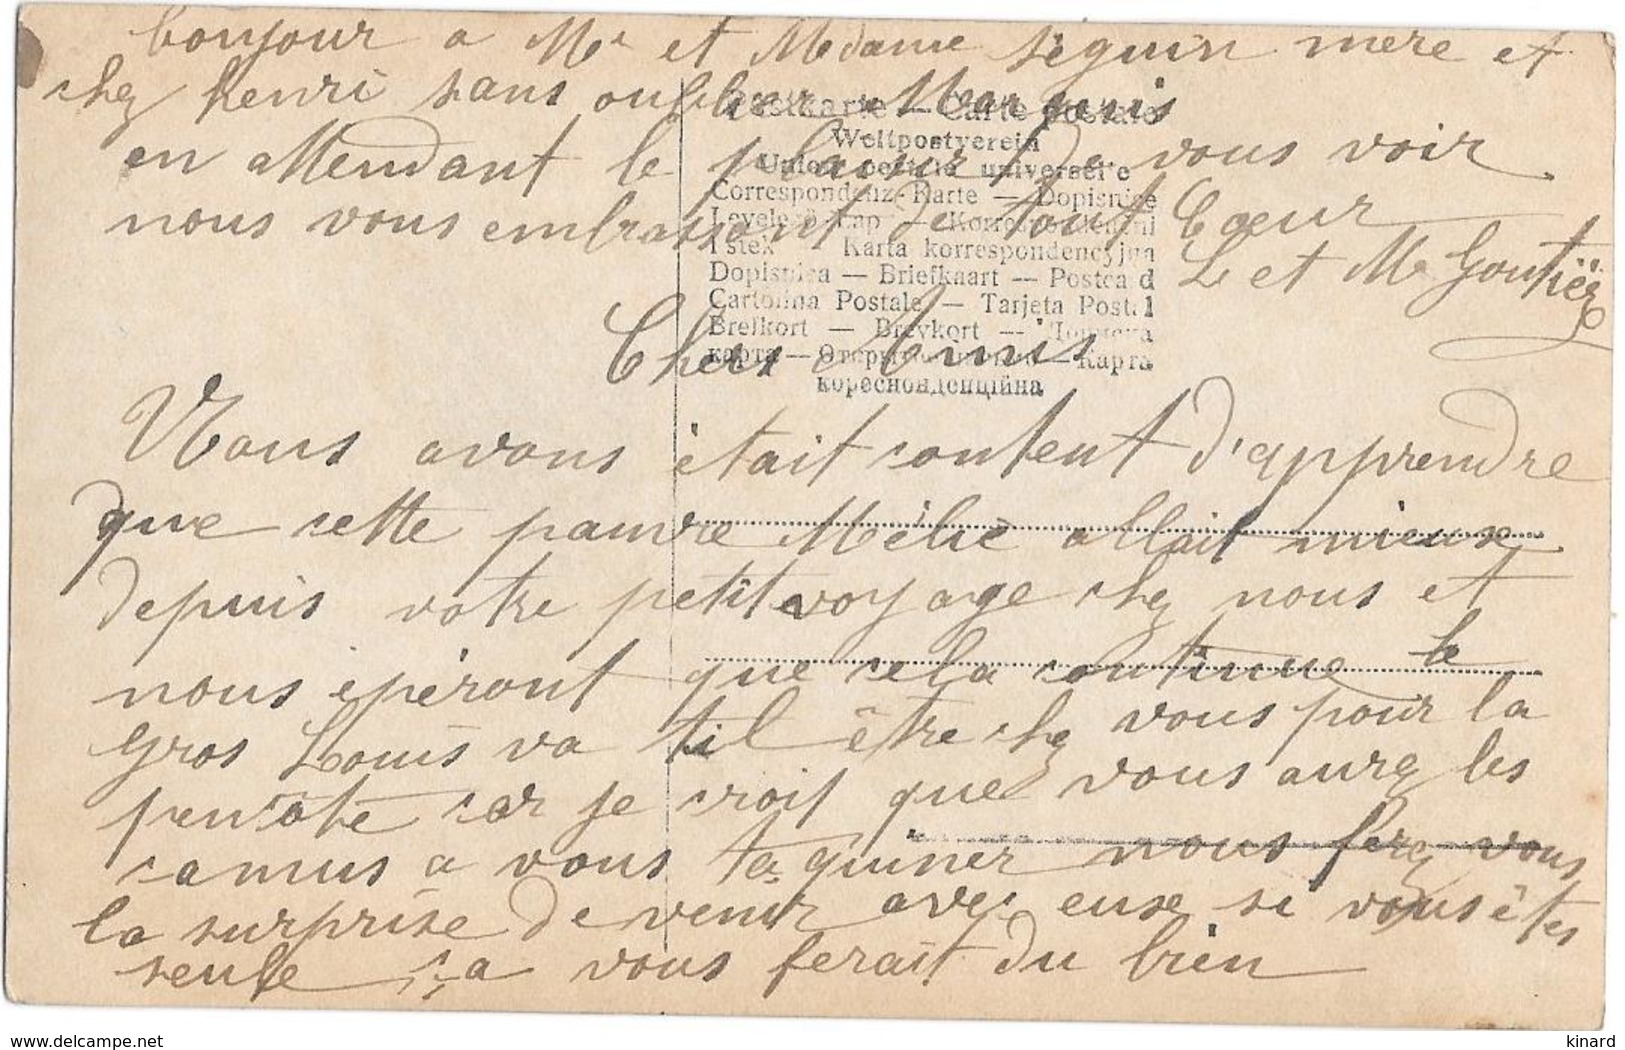 bonjour a Mr et Mdame séguin mere et
chez henri sans oublier Marquis
en attendant le plaisir de vous voir
nous vous embrassont de tout Cœur
L et M Goutière
Postkarte — Carte postale
Weltpostverein
Union postale universelle
Correspondenz-Karte — Dopisnice
Levelező-Lap — Korrespondenzni
listek — Karta korrespondencyjna
Dopisnica — Briefkaart — Postcard
Cartolina Postale — Tarjeta Postal
Brefkort — Brevkort —
карта — — Карта
кореспонденційна
Chers Amis
Nous avons était content d'apprendre
que cette pauvre Mélie allait mieux
depuis votre petit voyage chez nous et
nous épéront que cela continue le
gros Louis va til être chez vous pour la
pencote car je croit que vous aurez les
camus a vous taquiner nous ferez vous
la surprise de venir avec euse si vous êtes
seule ça vous ferait du bien
www.delcampe.net
kinard